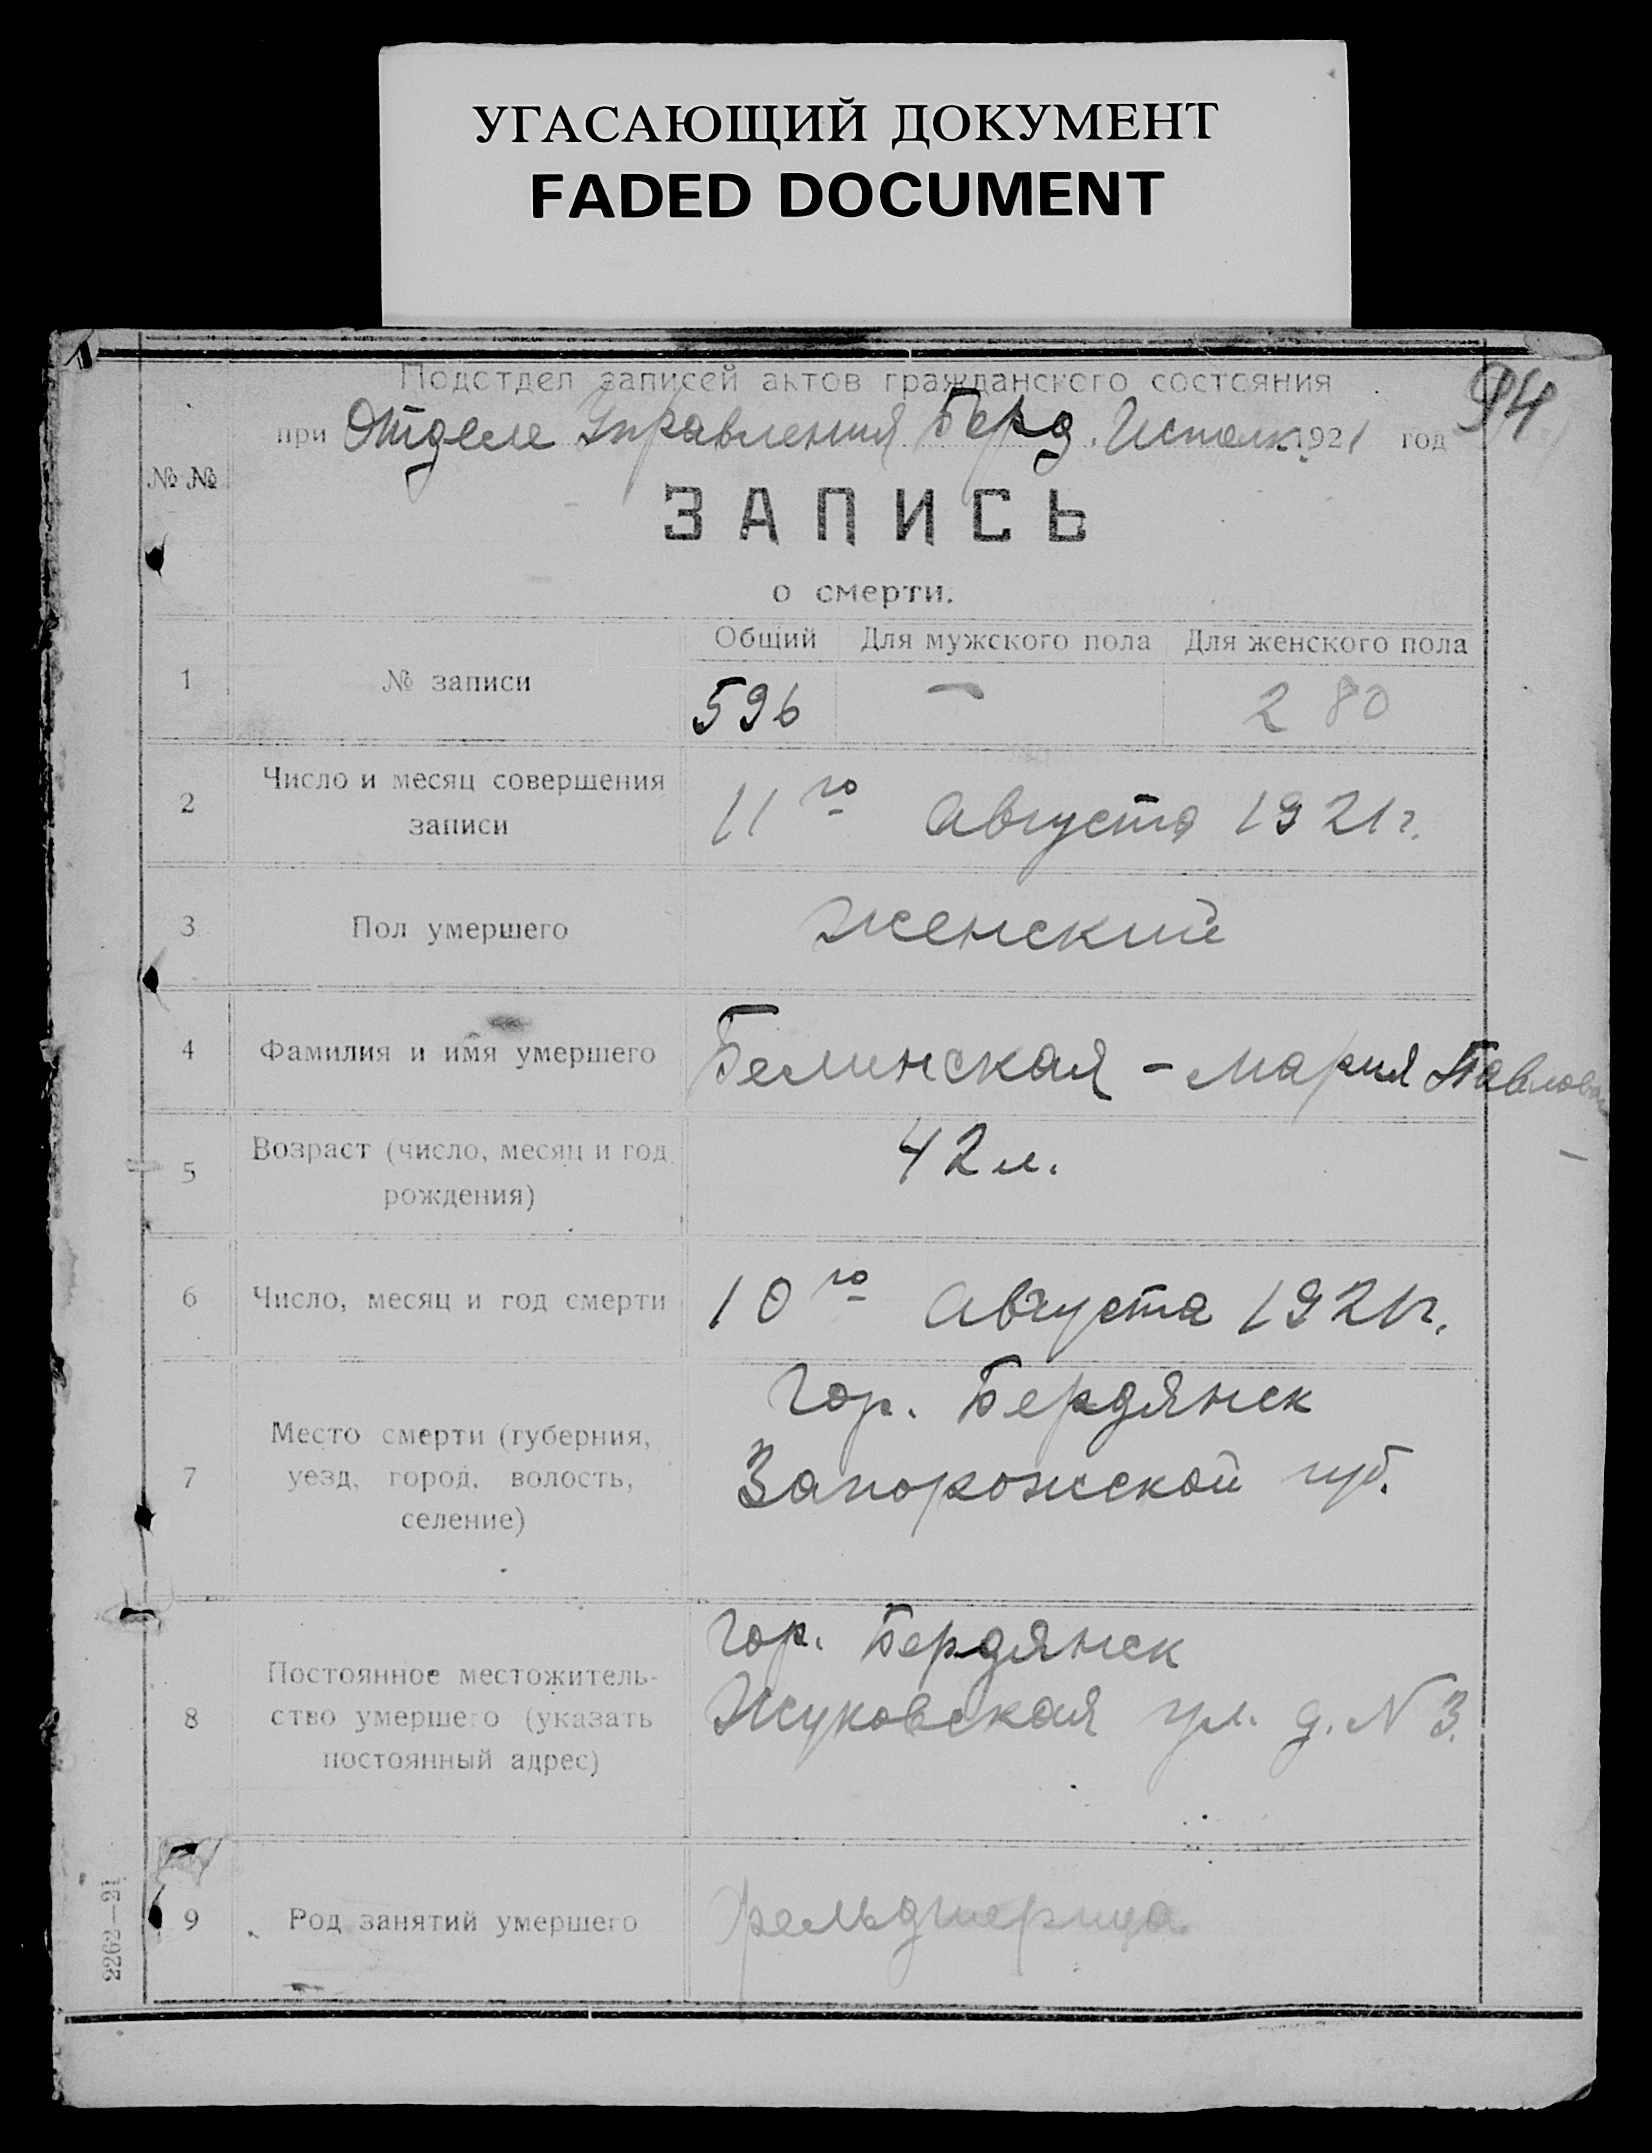 УГАСАЮЩИЙ ДОКУМЕНТ
FADED DOCUMENT
Подотдел записей актов гражданского состояния
94
при Отделе Управления Берд. Исполк. 1921 год
№ №
ЗАПИСЬ
о смерти.
Общий Для мужского пола Для женского пола
1 № записи 596 — 280
2 Число и месяц совершения
записи
11го Августа 1921г.
3 Пол умершего Женский
4 Фамилия и имя умершего Белинская - Мария Павлов
5 Возраст (число, месяц и год
рождения)
42 л.
6 Число, месяц и год смерти 10го Августа 1921г.
7 Место смерти (губерния,
уезд, город, волость,
селение)
Гор. Бердянск
Запорожской губ.
8 Постоянное местожитель-
ство умершего (указать
постоянный адрес)
Гор. Бердянск
Жуковская ул. д. N 3.
9 Род занятий умершего фельдшерица
2262—21